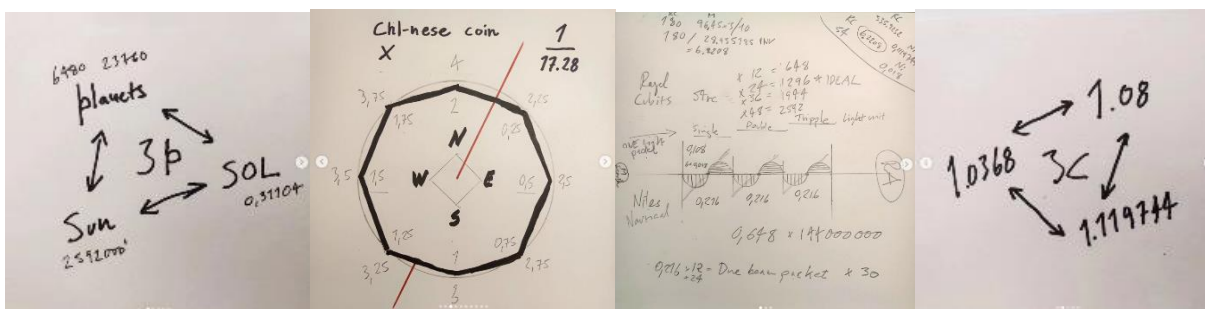 6480 23760
planets
3p
SOL
0,31104
Sun
2592000
Chl-nese coin
X
1
17.28
4
3,75
2,25
2
1,75
0,25
N
3,5
1,5
W
E
0,5
2,5
S
1,25
0,75
3,25
1
2,75
3
180
180 /
= 6,3208
Royal
Cubits
54rc
x 12 = 648
x 24 = 1296 * IDEAL
x 36 = 1944
x 48 = 2592
Single
Double
Tripple
Light unit
one light
packet
0,108
0,216
0,216
0,216
Niles
0,648 x 144000000
0,216 x 12 = One beam packet x 30
x 24
1.08
1.0368
3C
1.119744